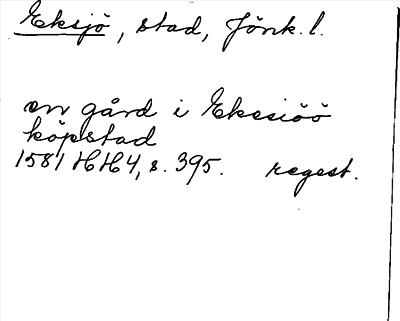 Eksjö, stad, Jönk. l.
en gård i Ekesiöö
köpstad
1581 HH4, s. 395. regest.